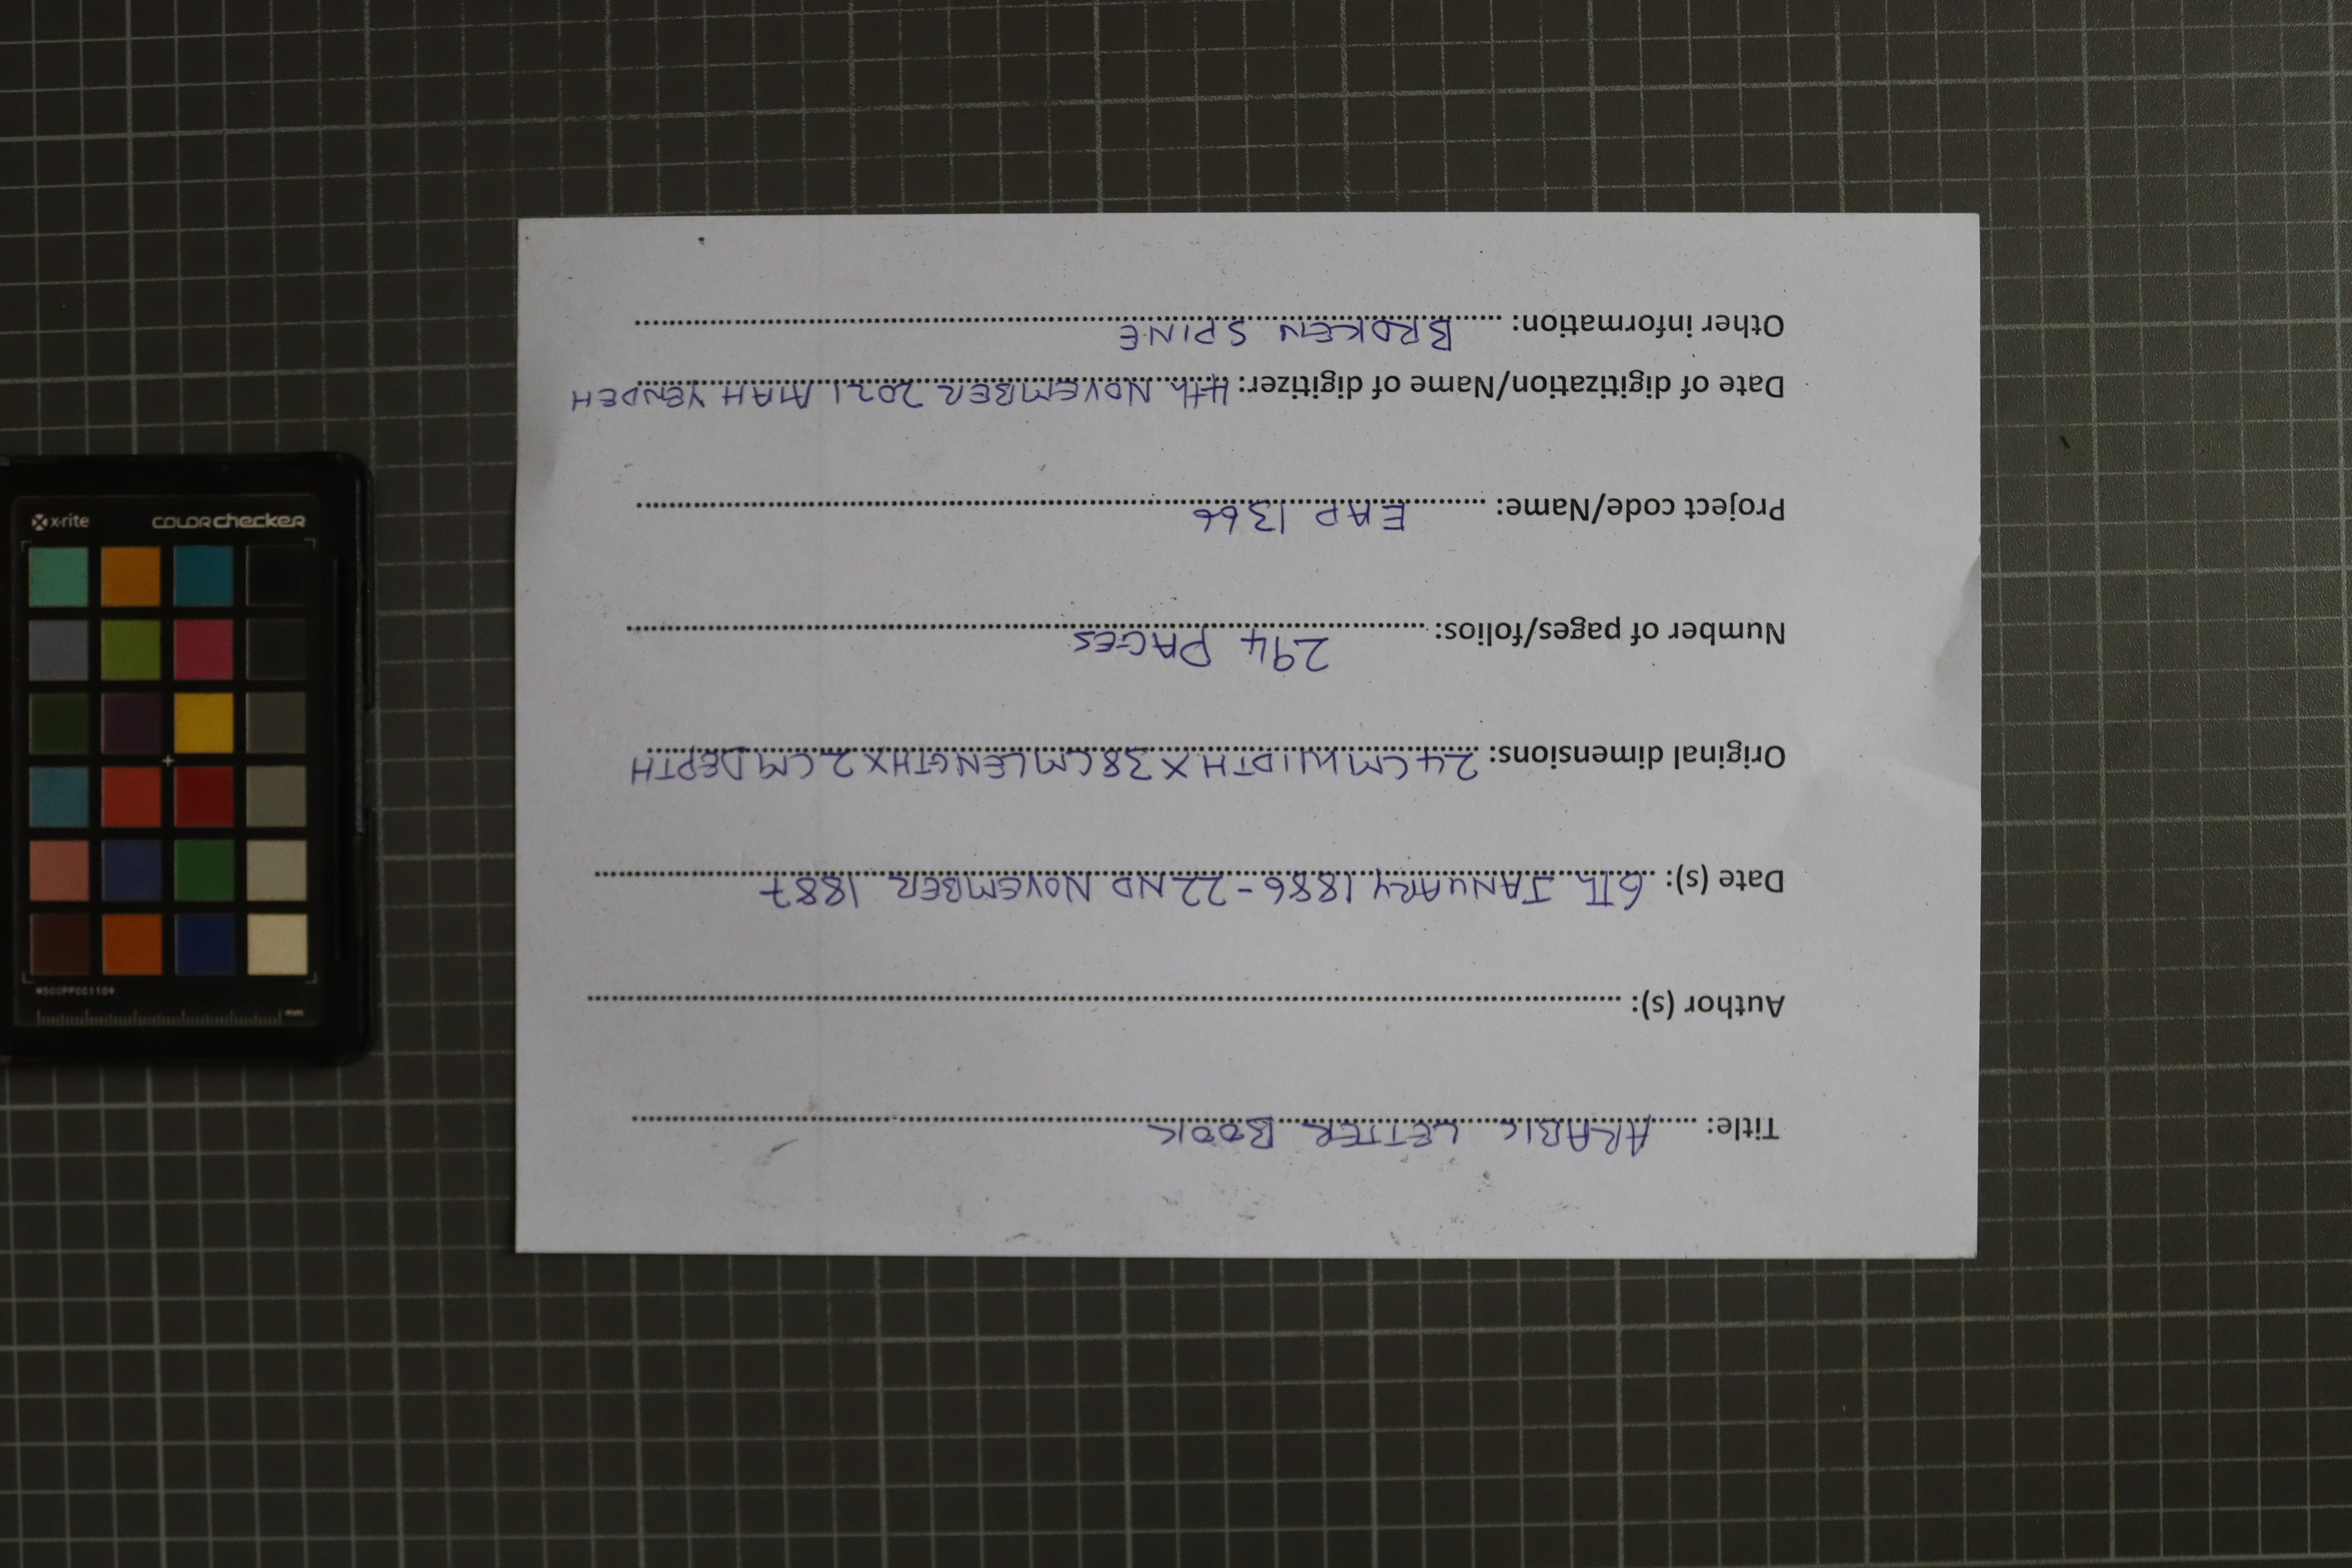 Title: ARABIC LETTER BOOK
Author (s):
Date (s): 6Th JANUARY 1886 - 22ND NOVEMBER 1887
Original dimensions: 24CM WIDTH X 38CM LENGTH X 2CM DEPTH
Number of pages/folios: 294 PAGES
Project code/Name: EAP 1366
Date of digitization/Name of digitizer: 4th NOVEMBER 2021 MAH YENDEH
Other information: BROKEN SPINE
x-rite colorchecker
MSCCPPCC1109
mm